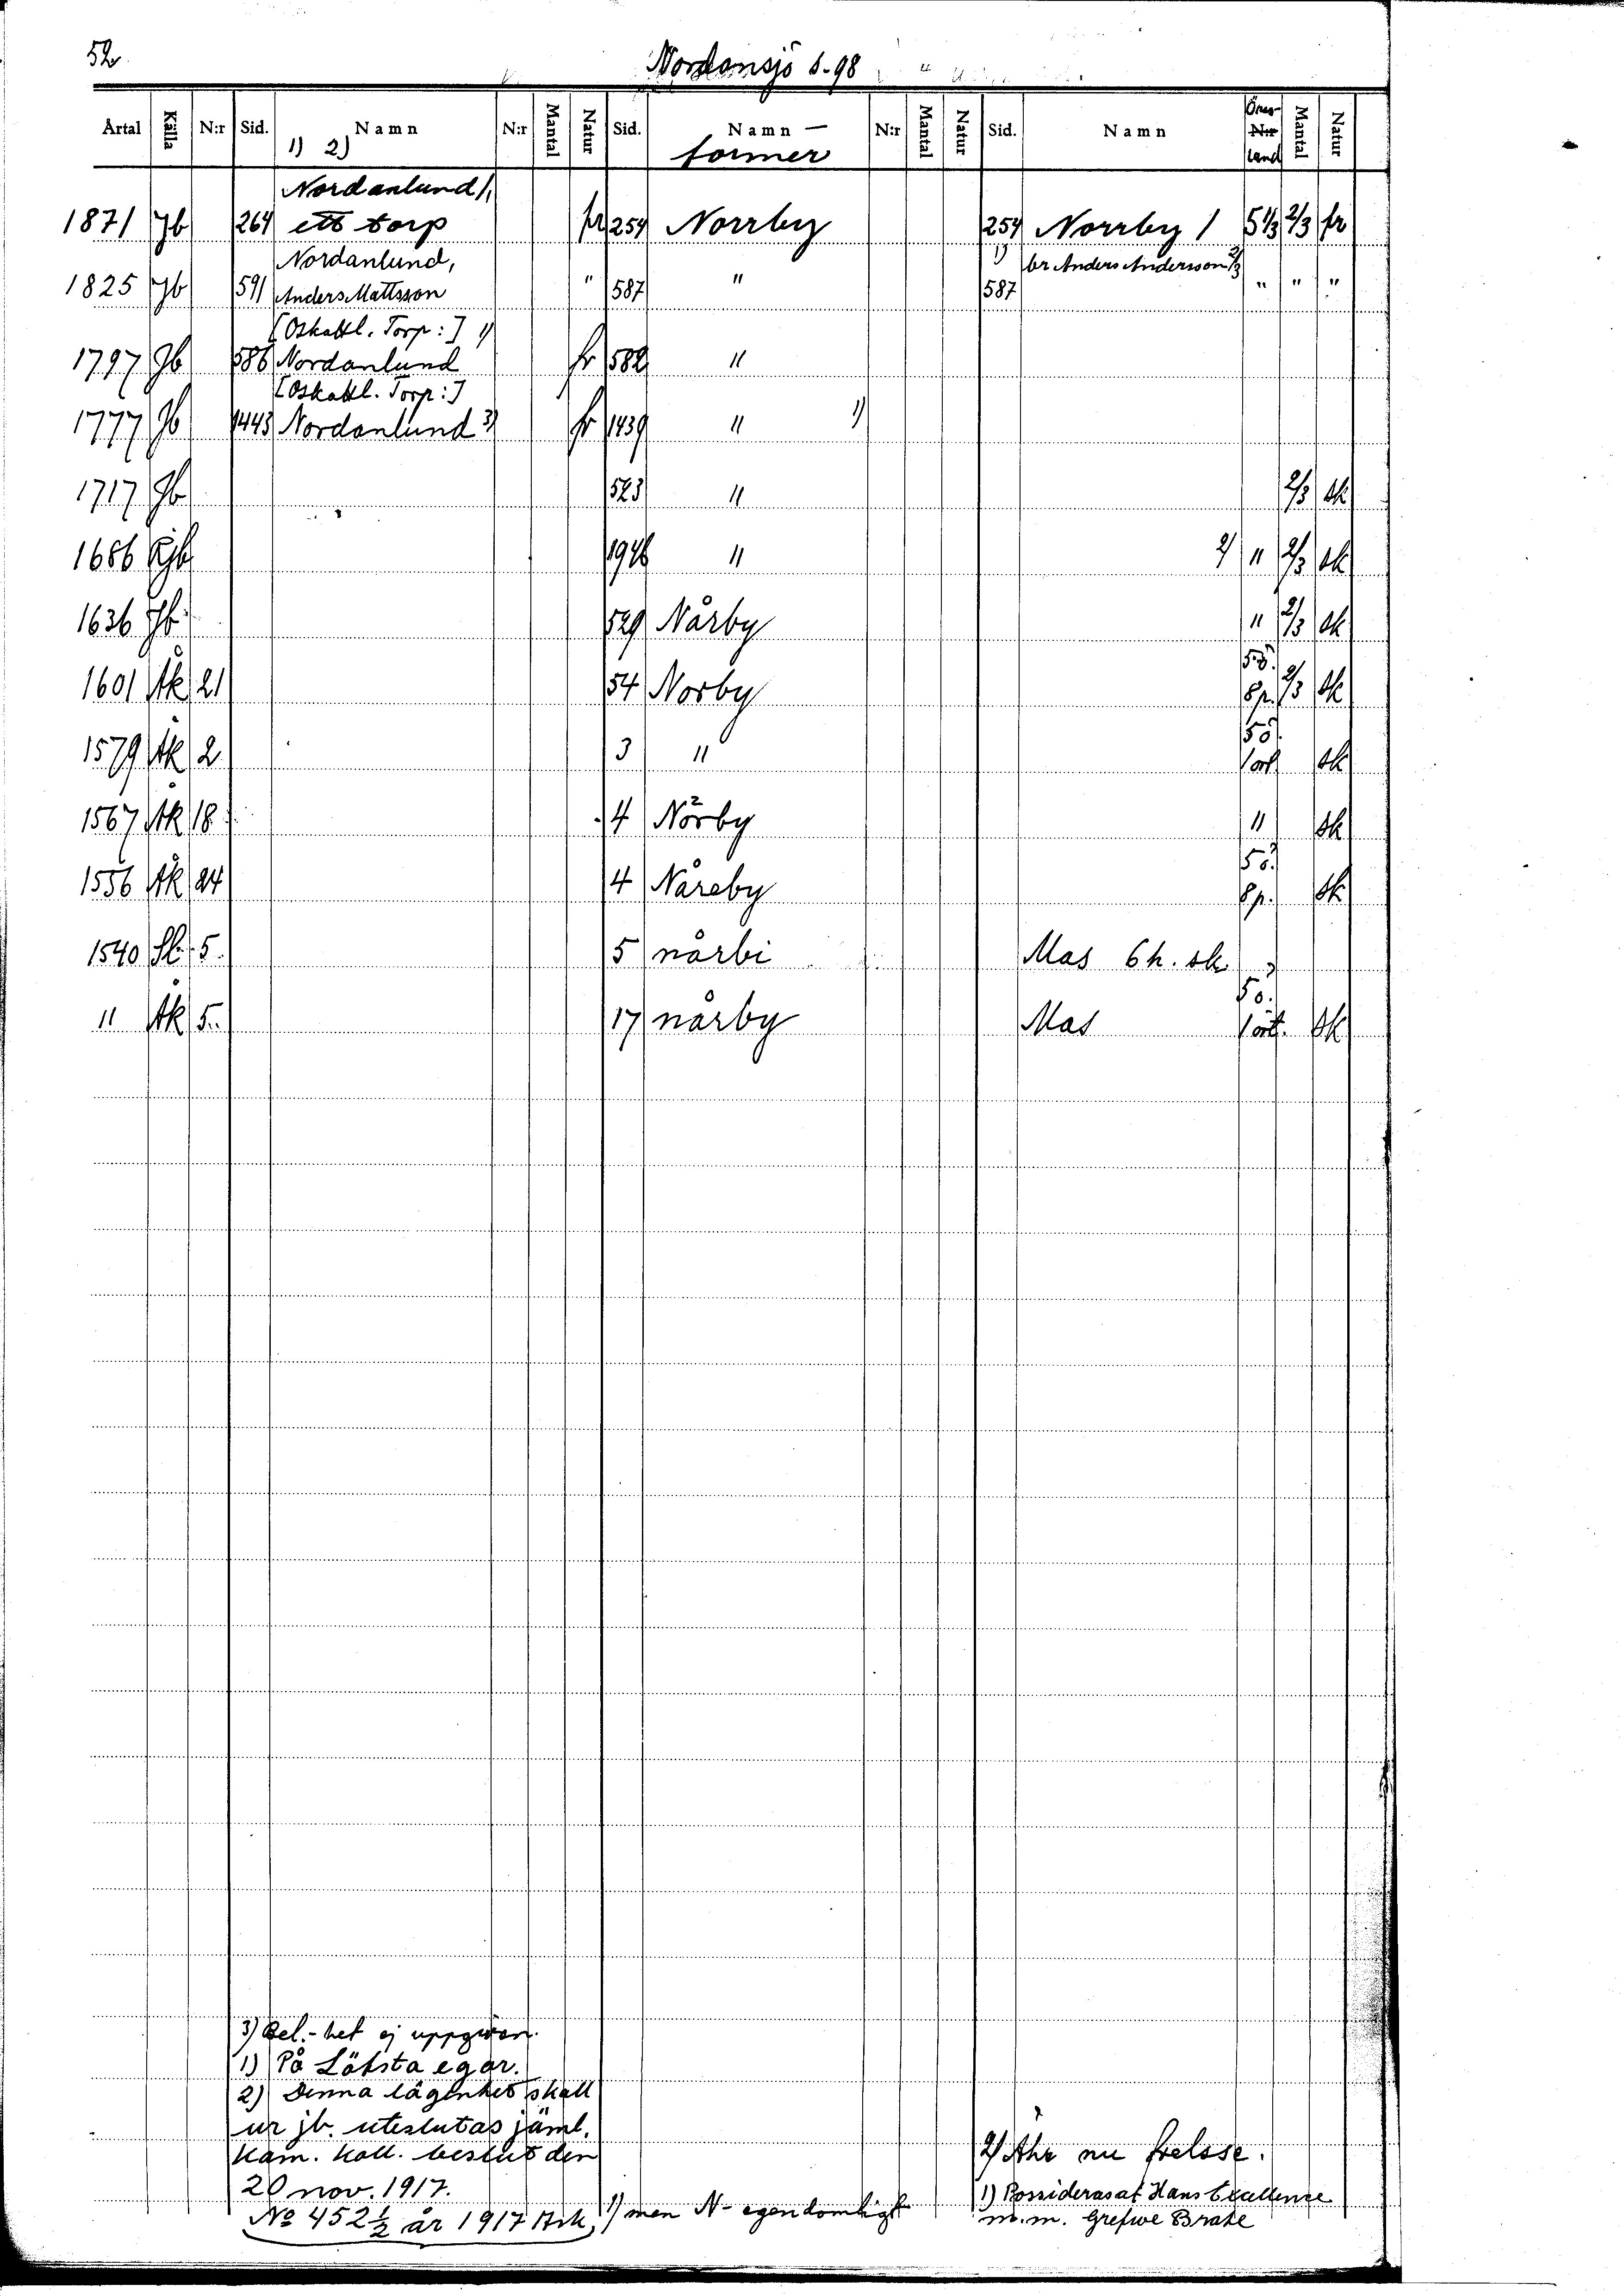 52.
Nordansjö s. 98
Årtal Källa N:r Sid. Namn N:r Mantal Natur Sid. Namn- N:r Mantal Natur Sid. Namn Öres- N:r Mantal Natur
1) 2) former land
Nordanlund 1,
1871 Jb 264 ett torp fr 254 Norrby 254 Norrby 1 5 1/3 2/3 fr
Nordanlund, 1) br Anders Andersson 2/3
1825 Jb 591 Anders Mattsson " 587 " 587 " " "
[Oskattl. Torp:] 1)
1797 Jb 586 Nordanlund fr 582 "
[Oskattl. Torp:]
1777 Jb 1443 Nordanlund 3) fr 1439 " 1)
1717 Jb 523 " 2/3 sk
1686 Jb 1946 " 2) " 2/3 sk
1636 Jb 529 Nårby " 2/3 sk
5 ö.
1601 Åk 21 54 Norby 8 p. 2/3 sk
5 ö.
1579 Åk 2 3 " 1 ört. sk
1567 Åk 18 4 Nörby " sk
5 ö.
1556 Åk 24 4 Nåreby 8 p. sk
1540 Sb. 5. 5 nårbi Mas 6 h. sk
5 ö.
" Åk 5. 17 nårby Mas 1 ört. sk
3) Bel.-het ej uppgiven.
1) På Löfsta egor.
2) Denna lägenhet skall
ur jb. uteslutas jäml.
Kam. Koll. beslut den
20 nov. 1917.
No 452 1/2 år 1917 Ark.
1) men N- egendomligt
2) Ähr nu frelsse.
1) Possideras af Hans Excellence
m.m. Grefwe Brahe